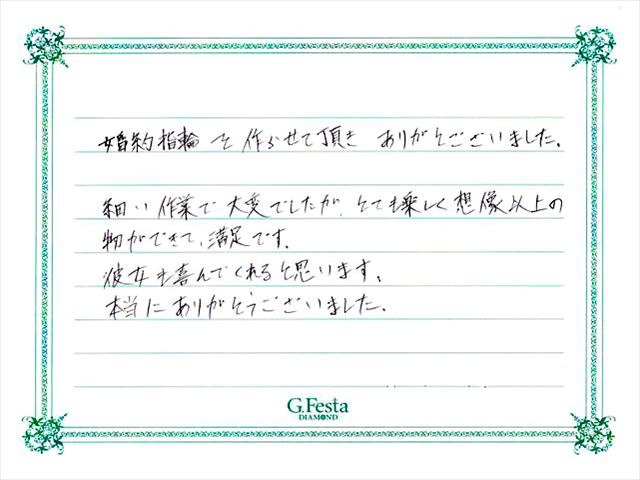 婚約指輪を作らせて頂き ありがとございました。
細い作業で大変でしたが、とても楽しく想像以上の
物ができて、満足です。
彼女も喜んでくれると思います。
本当にありがとうございました。
G.Festa
DIAMOND